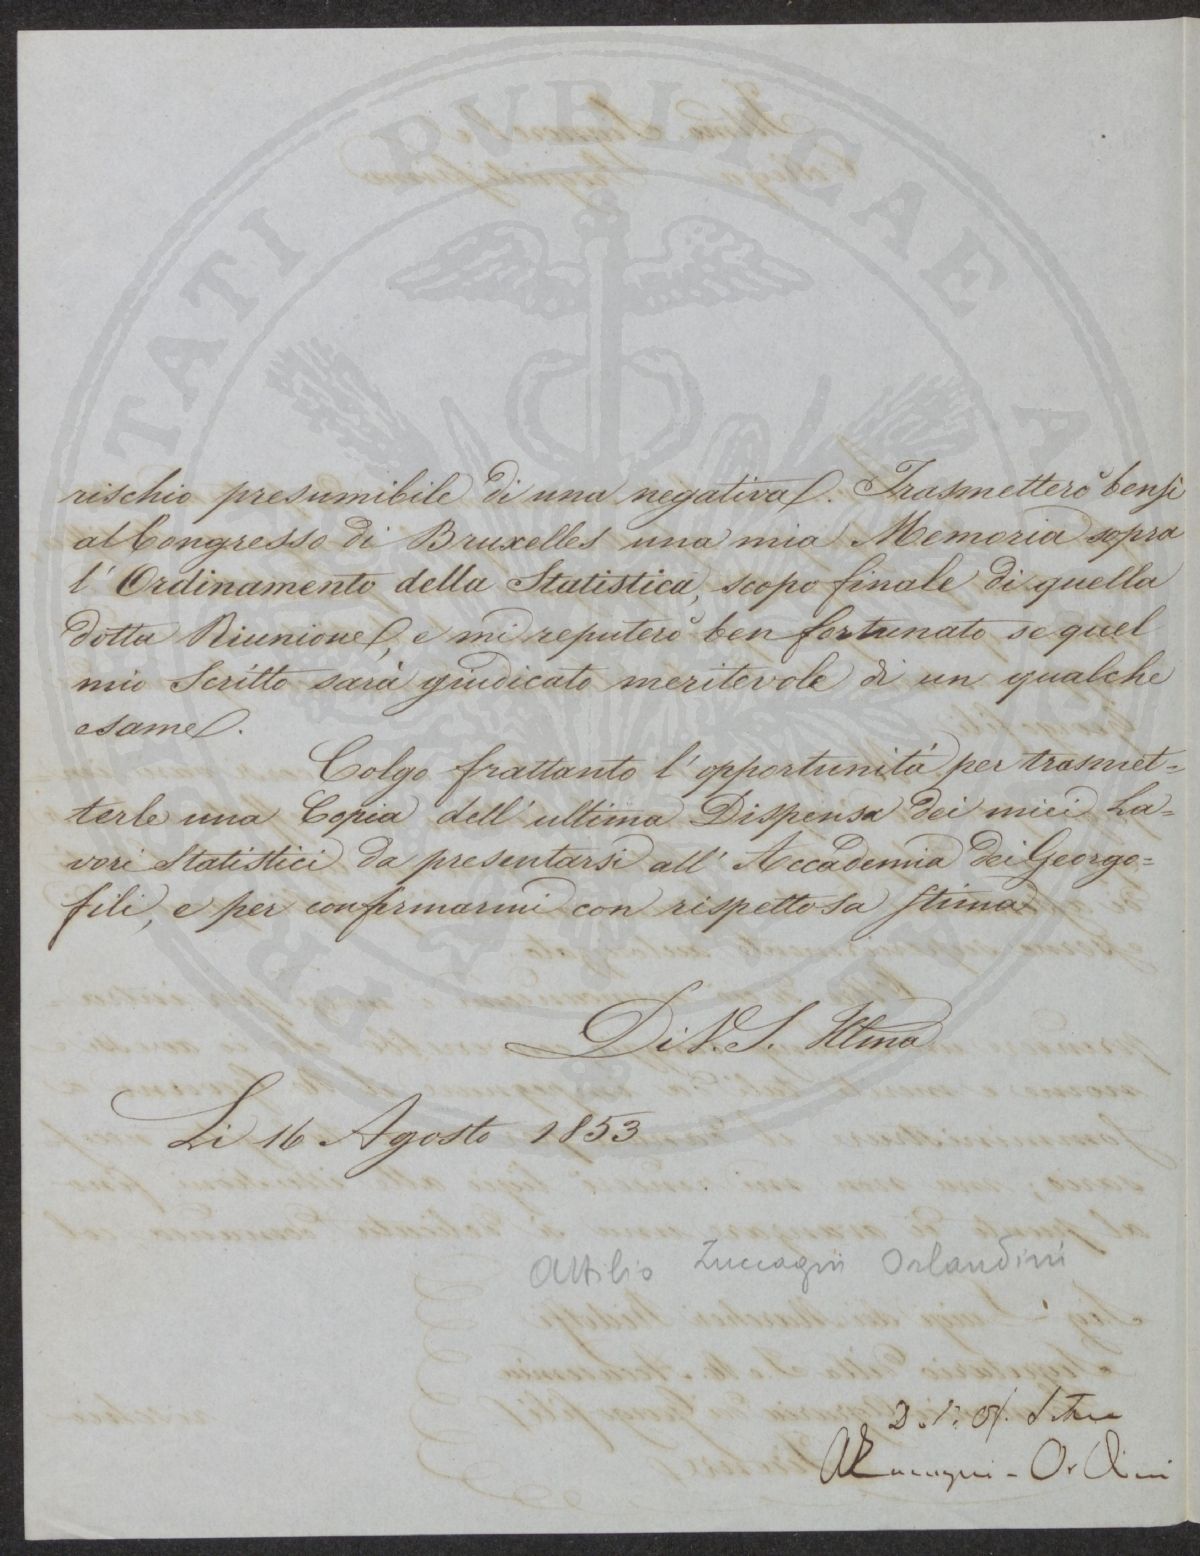 PROSPERITATI PUBLICAE AUGENDAE
rischio presumibile di una negativa. Trasmetterò bensì
al Congresso di Bruxelles una mia Memoria sopra
l'Ordinamento della Statistica, scopo finale di quella
dotta Riunione, e mi reputerò ben fortunato se quel
mio Scritto sarà giudicato meritevole di un qualche
esame.
Colgo frattanto l'opportunità per trasmet=
terle una Copia dell'ultima Dispensa dei miei La=
vori Statistici da presentarsi all'Accademia dei Georgo=
fili, e per confermarmi con rispettosa stima
Di V. S. Illma
Li 16 Agosto 1853
Attilio Zuccagni Orlandini
A Zuccagni - Orlandini